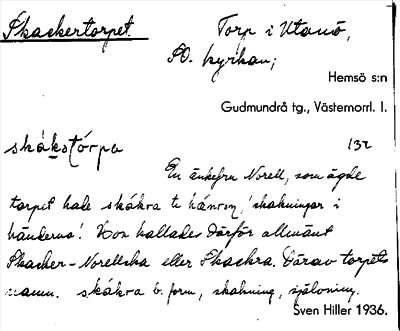 Skackertorpet. Torp i Utanö,
SO. kyrkan;
Hemsö s:n
Gudmundrå tg., Västernorrl. l.
132
skákstórpa
En änkefru Norell, som ägde
torpet hade skákra ti hä́nrom, 'skakningar i
händerna'. Hon kallades därför allmänt
Skacker-Norellska eller Skackra. Därav torpets
namn. skákra b. form, skakning, självning.
Sven Hiller 1936.